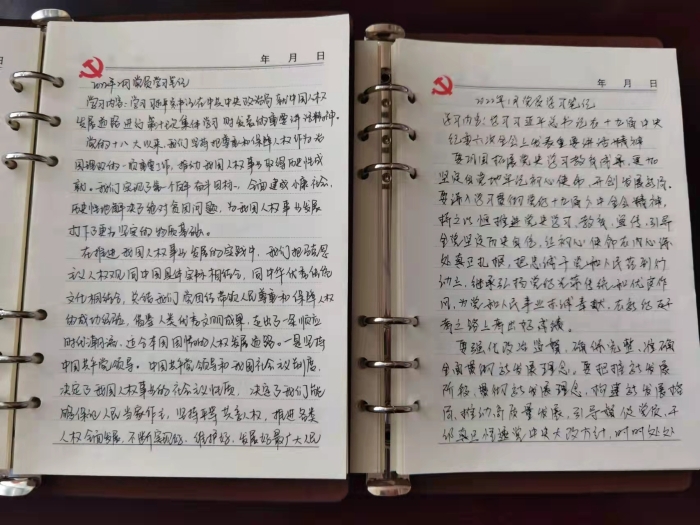 年 月 日
2022年2月党员学习笔记
学习内容：学习习近平总书记在中共中央政治局就中国人权
发展道路进行第三十七次集体学习时发表的重要讲话精神。
党的十八大以来，我们坚持把尊重和保障人权作为治
国理政的一项重要工作，推动我国人权事业取得历史性成
就。我们实现了第一个百年奋斗目标，全面建成小康社会，
历史性地解决了绝对贫困问题，为我国人权事业发展
打下了更为坚实的物质基础。
在推进我国人权事业发展的实践中，我们把马克思
主义人权观同中国具体实际相结合、同中华优秀传统
文化相结合，总结我们党团结带领人民尊重和保障人权
的成功经验，借鉴人类优秀文明成果，走出了一条顺应
时代潮流、适合本国国情的人权发展道路。一是坚持
中国共产党领导。中国共产党领导和我国社会主义制度，
决定了我国人权事业的社会主义性质，决定了我们能
够保证人民当家作主，坚持平等共享人权，推进各类
人权全面发展，不断实现好、维护好、发展好最广大人民
年 月 日
2022年1月党员学习笔记
学习内容：学习习近平总书记在十九届中央
纪委六次全会上发表重要讲话精神
要巩固拓展党史学习教育成果，更加
坚定自觉地牢记初心使命、开创发展新局。
要深入学习贯彻党的十九届六中全会精神，
持之以恒推进党史学习、教育、宣传，引导
全党坚定历史自信，让初心使命在内心深
处真正扎根，把忠诚于党和人民落到行
动上，继承弘扬党的光荣传统和优良作
风，为党和人民事业赤诚奉献，在新的赶
考之路上考出好成绩。
要强化政治监督，确保完整、准确、
全面贯彻新发展理念。要把握新发展
阶段、贯彻新发展理念、构建新发展格
局、推动高质量发展，引导督促党员、干
部真正悟透党中央大政方针，时时处处